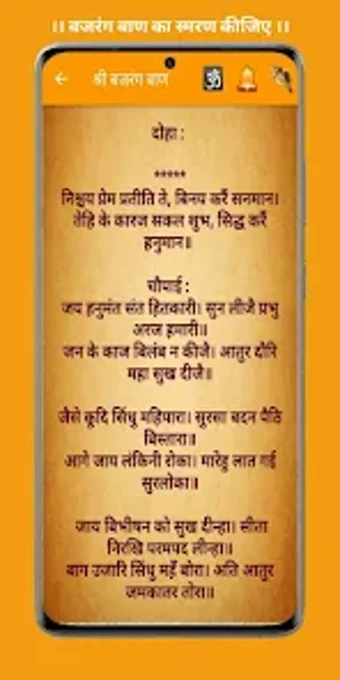 ।। बजरंग बाण का स्मरण कीजिए ।।
श्री बजरंग बाण
ॐ
दोहा :
*****
निश्चय प्रेम प्रतीति ते, बिनय करैं सनमान।
तेहि के कारज सकल शुभ, सिद्ध करैं
हनुमान॥
चौपाई :
जय हनुमंत संत हितकारी। सुन लीजै प्रभु
अरज हमारी॥
जन के काज बिलंब न कीजै। आतुर दौरि
महा सुख दीजै॥
जैसे कूदि सिंधु महिपारा। सुरसा बदन पैठि
बिस्तारा॥
आगे जाय लंकिनी रोका। मारेहु लात गई
सुरलोका॥
जाय बिभीषन को सुख दीन्हा। सीता
निरखि परमपद लीन्हा॥
बाग उजारि सिंधु महँ बोरा। अति आतुर
जमकातर तोरा॥